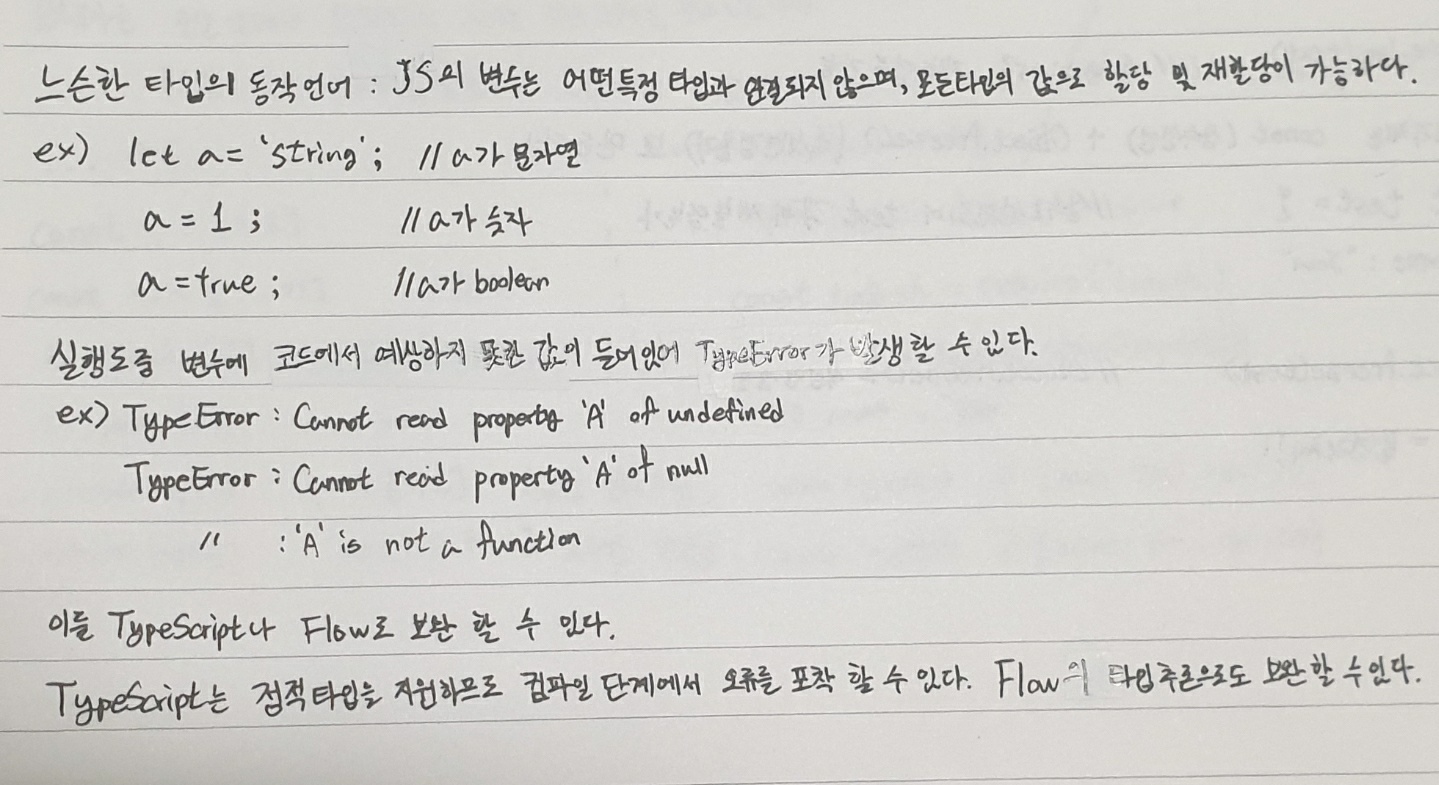 느슨한 타입의 동작언어 : JS의 변수는 어떤특정 타입과 연결되지 않으며, 모든타입의 값으로 할당 및 재할당이 가능하다.
ex) let a = 'string'; //a가 문자열
a = 1 ; //a가 숫자
a = true ; //a가 boolean
실행도중 변수에 코드에서 예상하지 못한 값이 들어있어 TypeError가 발생할 수 있다.
ex) TypeError : Cannot read property 'A' of undefined
TypeError : Cannot read property 'A' of null
〃 : 'A' is not a function
이를 TypeScript나 Flow로 보완 할 수 있다.
TypeScript는 정적타입을 지원하므로 컴파일 단계에서 오류를 포착 할 수 있다. Flow의 타입추론으로도 보완할 수 있다.